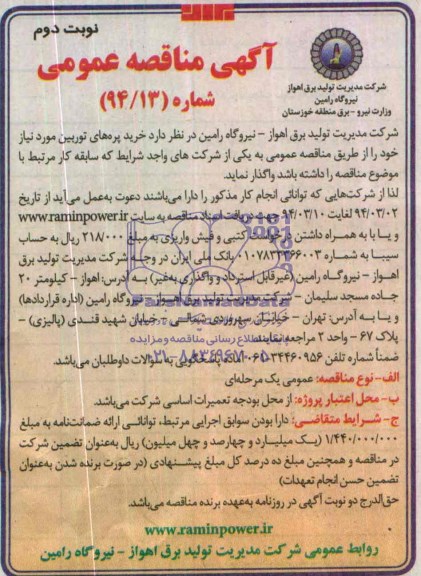 نوبت دوم
آگهی مناقصه عمومی
شماره (۹۴/۱۳)
شرکت مدیریت تولید برق اهواز
نیروگاه رامین
وزارت نیرو - برق منطقه خوزستان
شرکت مدیریت تولید برق اهواز - نیروگاه رامین در نظر دارد خرید پره‌های توربین مورد نیاز
خود را از طریق مناقصه عمومی به یکی از شرکت های واجد شرایط که سابقه کار مرتبط با
موضوع مناقصه را داشته باشد واگذار نماید.
لذا از شرکت‌هایی که توانائی انجام کار مذکور را دارا می‌باشند دعوت به‌عمل می‌آید از تاریخ
۹۴/۰۳/۰۲ لغایت ۹۴/۰۳/۱۰ جهت دریافت اسناد مناقصه به سایت www.raminpower.ir
و یا با به همراه داشتن درخواست کتبی و فیش واریزی به مبلغ ۲۱۸/۰۰۰ ریال به حساب
سیبا به شماره ۰۱۰۷۸۳۲۳۶۶۰۰۳ بانک ملی ایران در وجه شرکت مدیریت تولید برق
اهواز - نیروگاه رامین (غیرقابل استرداد و واگذاری به‌غیر) به آدرس: اهواز - کیلومتر ۲۰
جاده مسجد سلیمان - شرکت مدیریت تولید برق اهواز - نیروگاه رامین (اداره قراردادها)
و یا به آدرس: تهران - خیابان سهروردی شمالی - خیابان شهید قندی (پالیزی) -
پلاک ۶۷ - واحد ۲ مراجعه نمایند.
ضمناً شماره تلفن ۳۴۴۶۰۹۵۶-۰۶۱ آماده پاسخگویی به سوالات داوطلبان می‌باشد.
الف- نوع مناقصه: عمومی یک مرحله‌ای
ب- محل اعتبار پروژه: از محل بودجه تعمیرات اساسی شرکت می‌باشد.
ج- شرایط متقاضی: دارا بودن سوابق اجرایی مرتبط، توانائی ارائه ضمانت‌نامه به مبلغ
۱/۴۴۰/۰۰۰/۰۰۰ (یک میلیارد و چهارصد و چهل میلیون) ریال به‌عنوان تضمین شرکت
در مناقصه و همچنین مبلغ ده درصد کل مبلغ پیشنهادی (در صورت برنده شدن به‌عنوان
تضمین حسن انجام تعهدات)
حق‌الدرج دو نوبت آگهی در روزنامه به‌عهده برنده مناقصه می‌باشد.
www.raminpower.ir
روابط عمومی شرکت مدیریت تولید برق اهواز - نیروگاه رامین